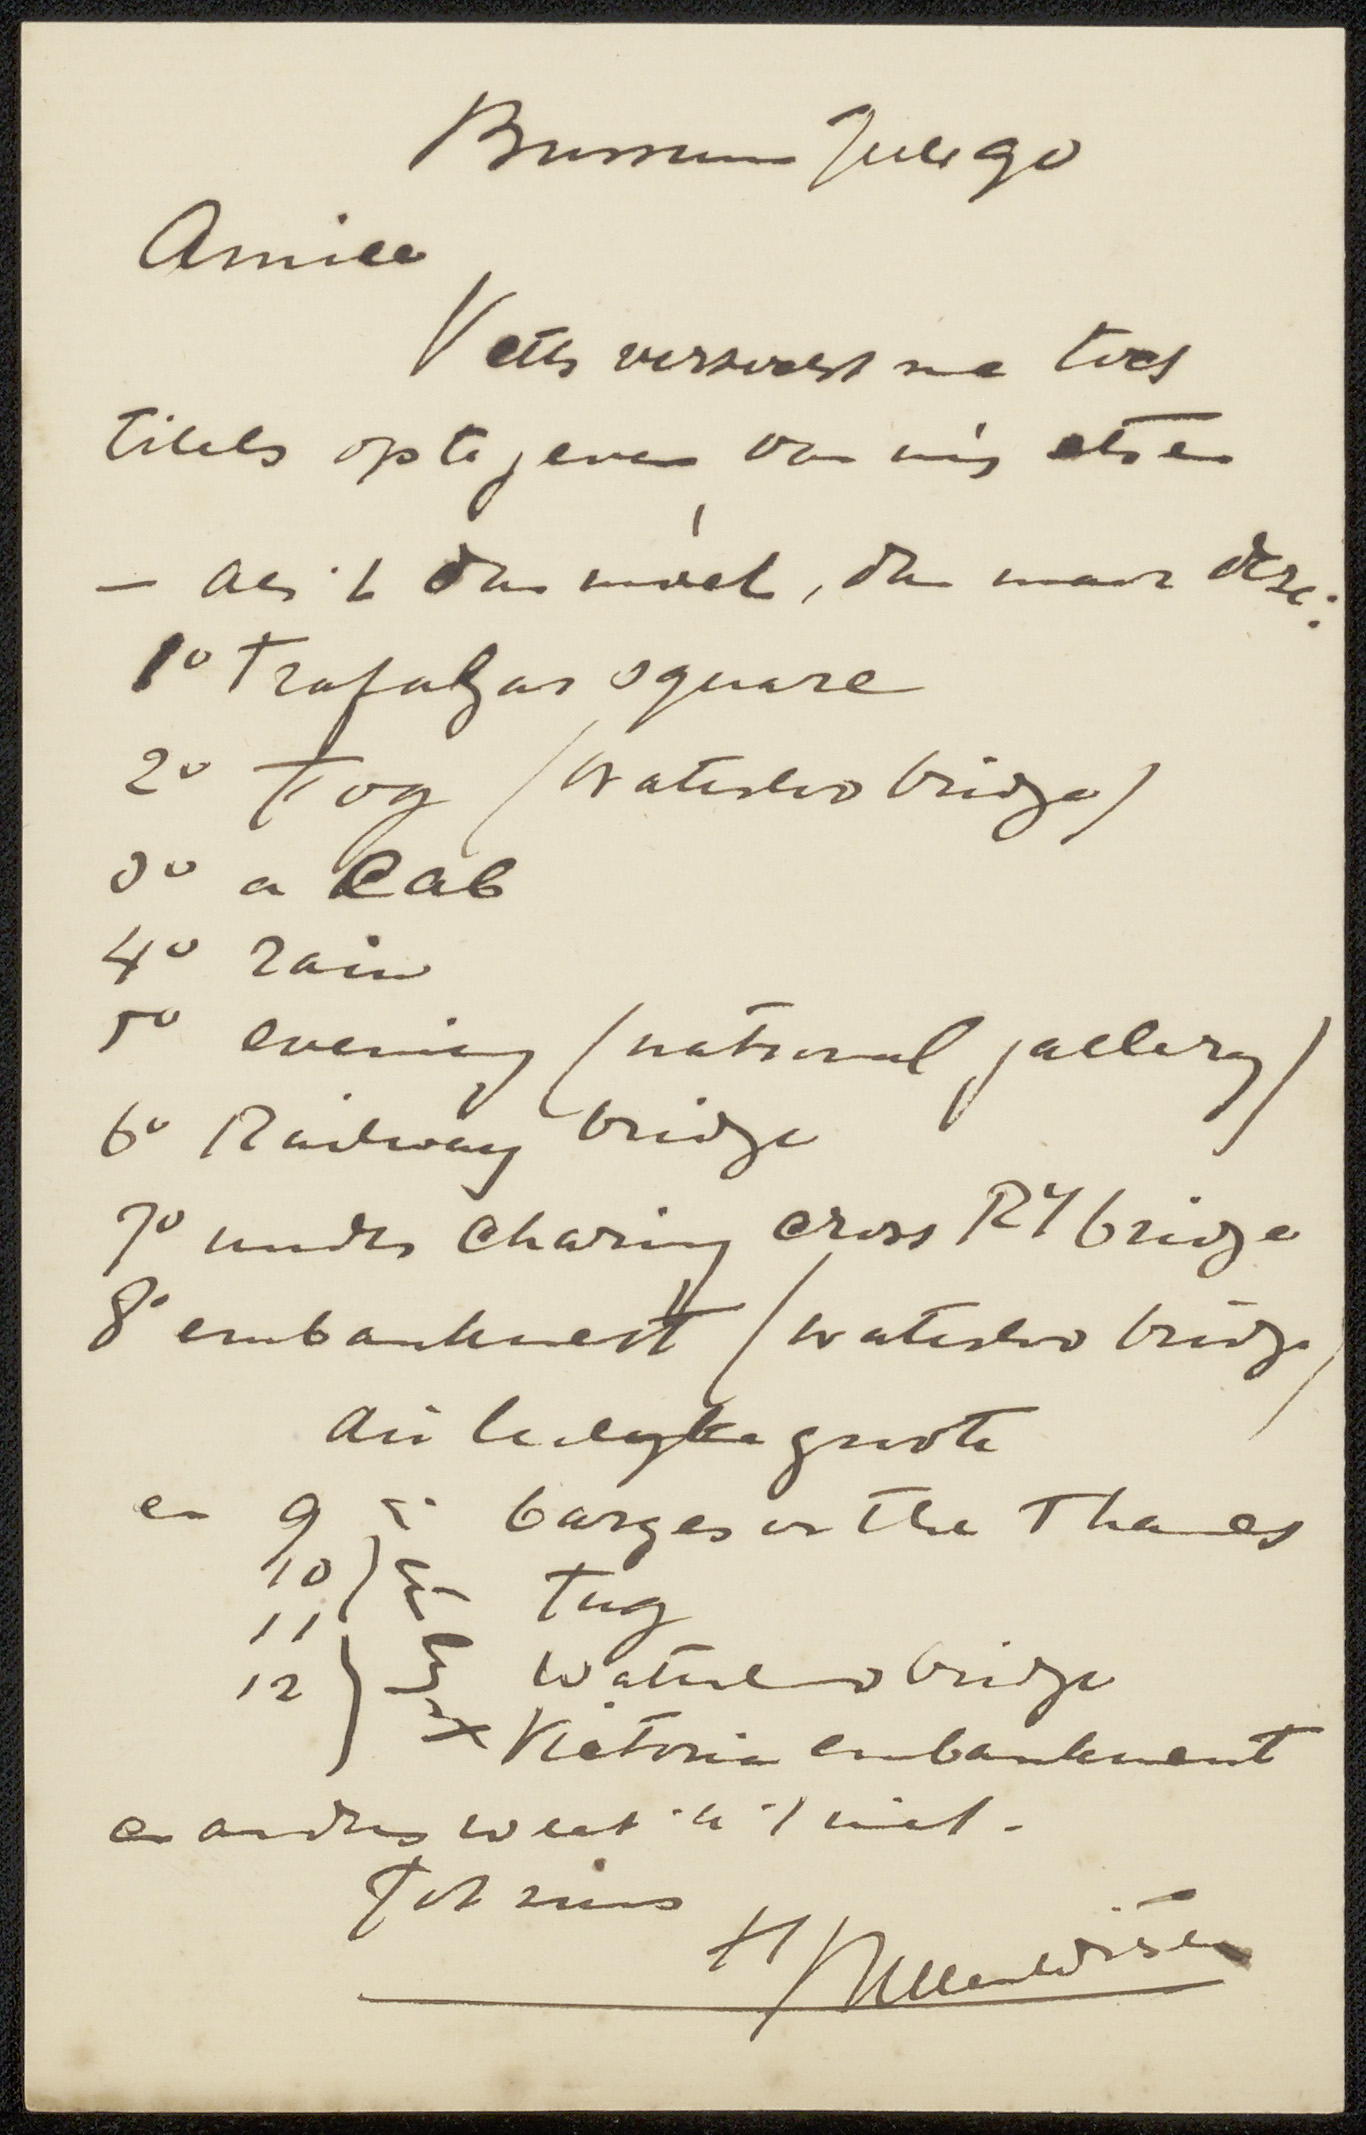 Bussum Juli 90
Amice
Veth verzoekt me toch
titels op te geven van mijn etsen
— als 't dan moet, dan maar deze:
1o Trafalgar square
2o Fog (Waterloo bridge)
3o a Cab
4o rain
5o evening (national gallery)
6o Railway bridge
7o under Charing cross Ry bridge
8o embankment (Waterloo bridge)
groote
en 9 barges on the Thames
10
11 Tug
12 Waterloo bridge
Victoria embankment
en anders weet ik 't niet.
Tot ziens